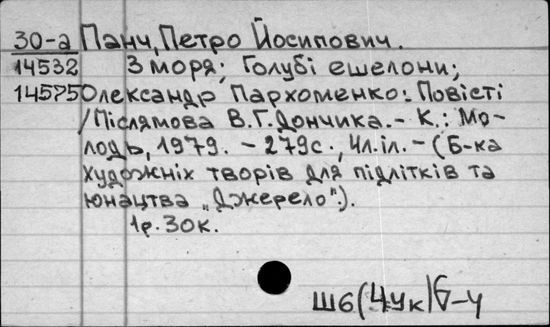 30-а Панч, Петро Йосипович.
14532 З моря; Голубі ешелони;
14575 Олександр Пархоменко: Повісті
/Післямова В.Г.Дончика.- К.: Мо-
лодь, 1979. - 279с., 4л.іл. - (Б-ка
художніх творів для підлітків та
юнацтва „Джерело").
1р. 30к.
Ш6(4Ук)6-4